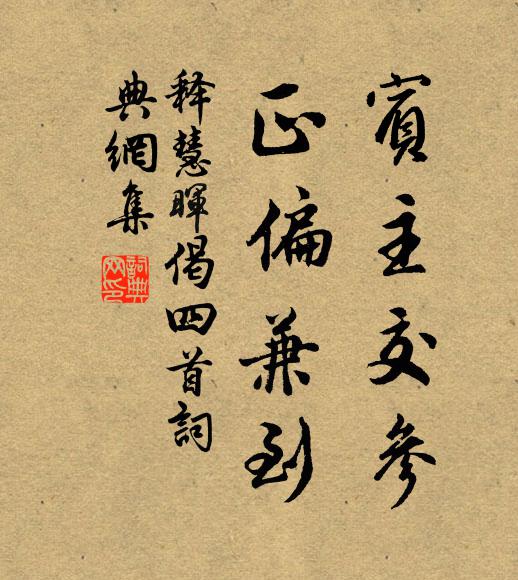 賓主交參
正偏兼到
释慧暉偈四首詞
典網集
詞典網印